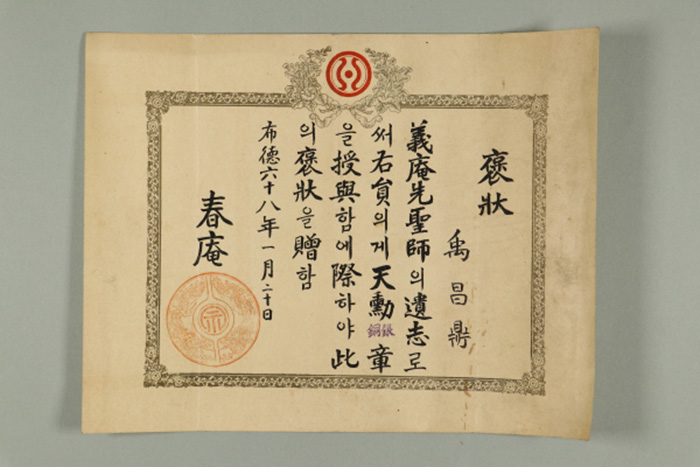 褒狀
禹昌鼎
義庵先聖師의遺志로
써右員의게天勳銀銅章
을授與함에際하야此
의褒狀을贈함
布德六十八年一月二十日
春庵